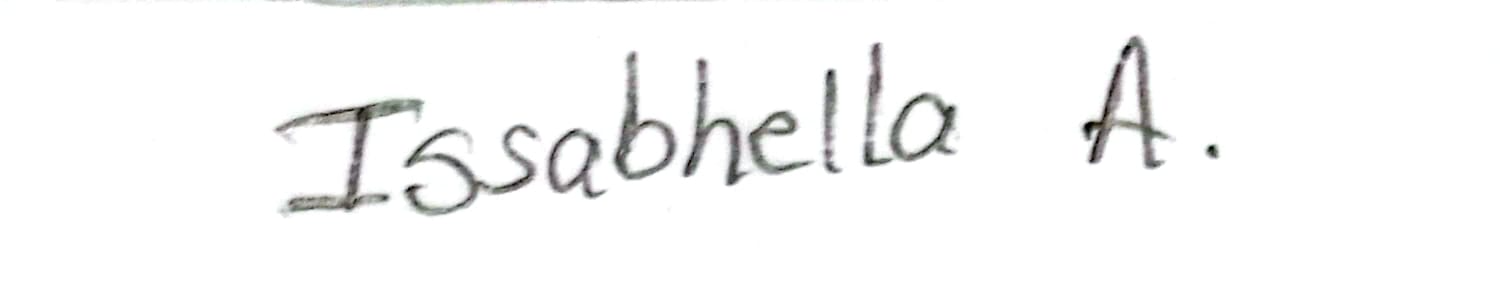 Issabhella A.